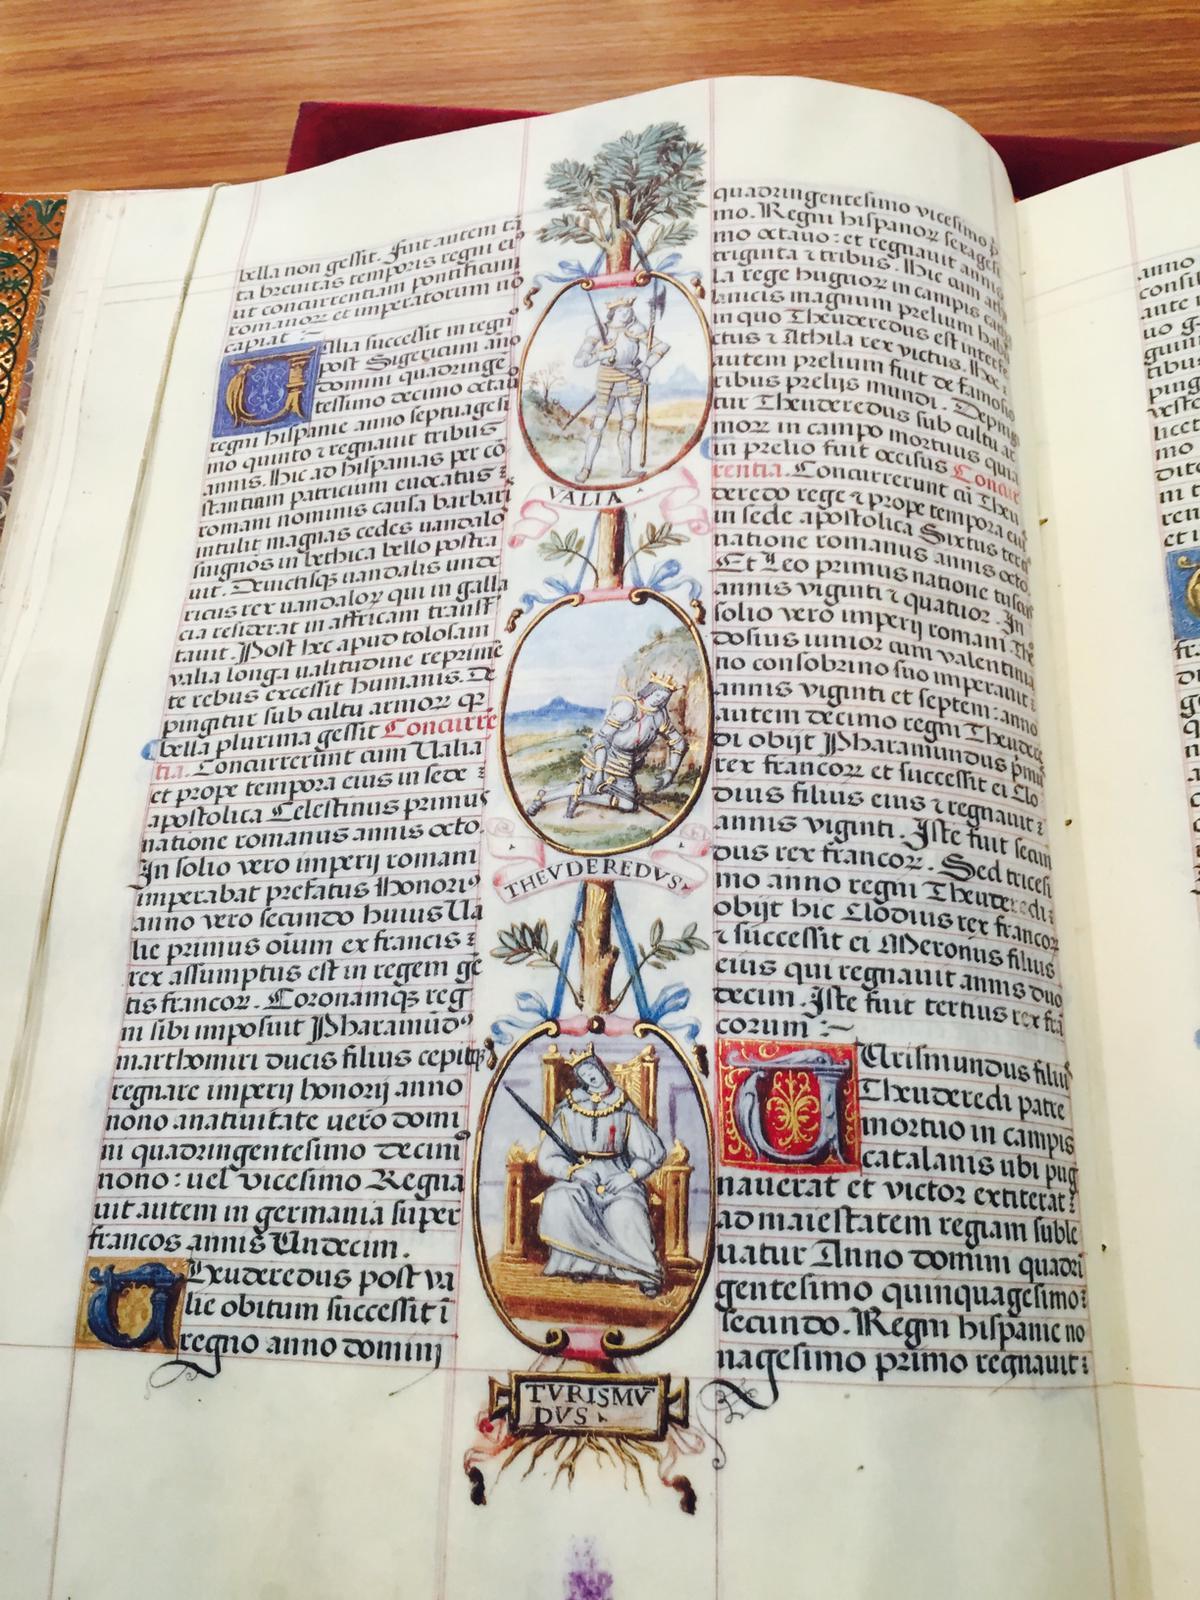 bella non gessit. Fuit autem tā
ta brevitas temporis regni ei⁹
ut concurrentiam pontificum
romanoꝝ et imperatorum nō
capiat :~
Ualia successit in regn
post Sigericum año
domini quadringe
tessimo decimo octau
regni hispanie anno septuagesi
mo quinto ⁊ regnauit tribus
annis. Hic ad hispanias per cō
stantium patricium euocatus
romani nominis causa barbari
intulit magnas cedes uandalo
singuos in bethica bello postra
uit. Deuictisqꝫ uandalis unde
ricus rex uandaloꝝ qui in galla
cia residerat in affricam transf
tauit. Post hec apud tolosam
valia longa ualitudine reprime
te rebus excessit humanis. De
pingitur sub cultu armoꝝ qꝛ
bella plurima gessit Concurrē
tia. Concurrerunt cum Ualia
et prope tempora eius in sede
apostolica Celestinus primus
natione romanus annis octo.
In solio vero imperij romani
imperabat prefatus Honori⁹
anno vero secundo huius Ua
lie primus oīum ex francis
rex assumptus est in regem gē
tis francoꝝ. Coronamqꝫ reg
ni sibi imposuit Pharamūd⁹
marthomiri ducis filius cepitqꝫ
regnare imperij honorij anno
nono anatiuitate uero domi
ni quadringentesimo decimo
nono: uel vicesimo Regna
uit autem in germania super
francos annis Undecim.
Theuderedus post va
lie obitum successit ī
regno anno domini
VALIA
THEVDEREDVS
TVRISMV̄
DVS
quadringentesimo vicesimo p
mo. Regni hispanoꝝ septages
mo octauo: et regnauit annis
triginta ⁊ tribus. Hic cum athi
la rege hugnoꝝ in campis cath
lanicis magnum prelium habu
in quo Theuderedus est interfe
ctus ⁊ Athila rex victus. Hoc
autem prelium fuit de famosio
ribus prelijs mundi. Depingi
tur Theuderedus sub cultu ar
moꝝ in campo mortuus quia
in prelio fuit occisus Concur
rentia. Concurrerunt cū Theu
deredo rege ⁊ prope tempora eius
in sede apostolica Sixtus terci
natione romanus annis octo.
Et Leo primus natione tuscus
annis viginti ⁊ quatuor. In
solio verò imperij romani The
dosius iunior cum valentinia
no consobrino suo imperauit
annis viginti et septem: anno
autem decimo regni Theudere
di obijt Pharamundus pʼmus
rex francoꝝ et successit ei Clo
dius filius eius ⁊ regnauit
annis viginti. Iste fuit secun
dus rex francoꝝ. Sed tricesi
mo anno regni Theuderedi
obijt hic Clodius rex francoꝝ
⁊ successit ei Meronius filius
eius qui regnauit annis duo
decim. Iste fuit tertius rex frā
corum :~
Urismundus filius
Theuderedi patre
mortuo in campis
catalanis ubi pug
nauerat et victor extiterat
ad maiestatem regiam suble
uatur Anno domini quadri
gentesimo quinquagesimo
secundo. Regni hispanie no
nagesimo primo regnauit
anno